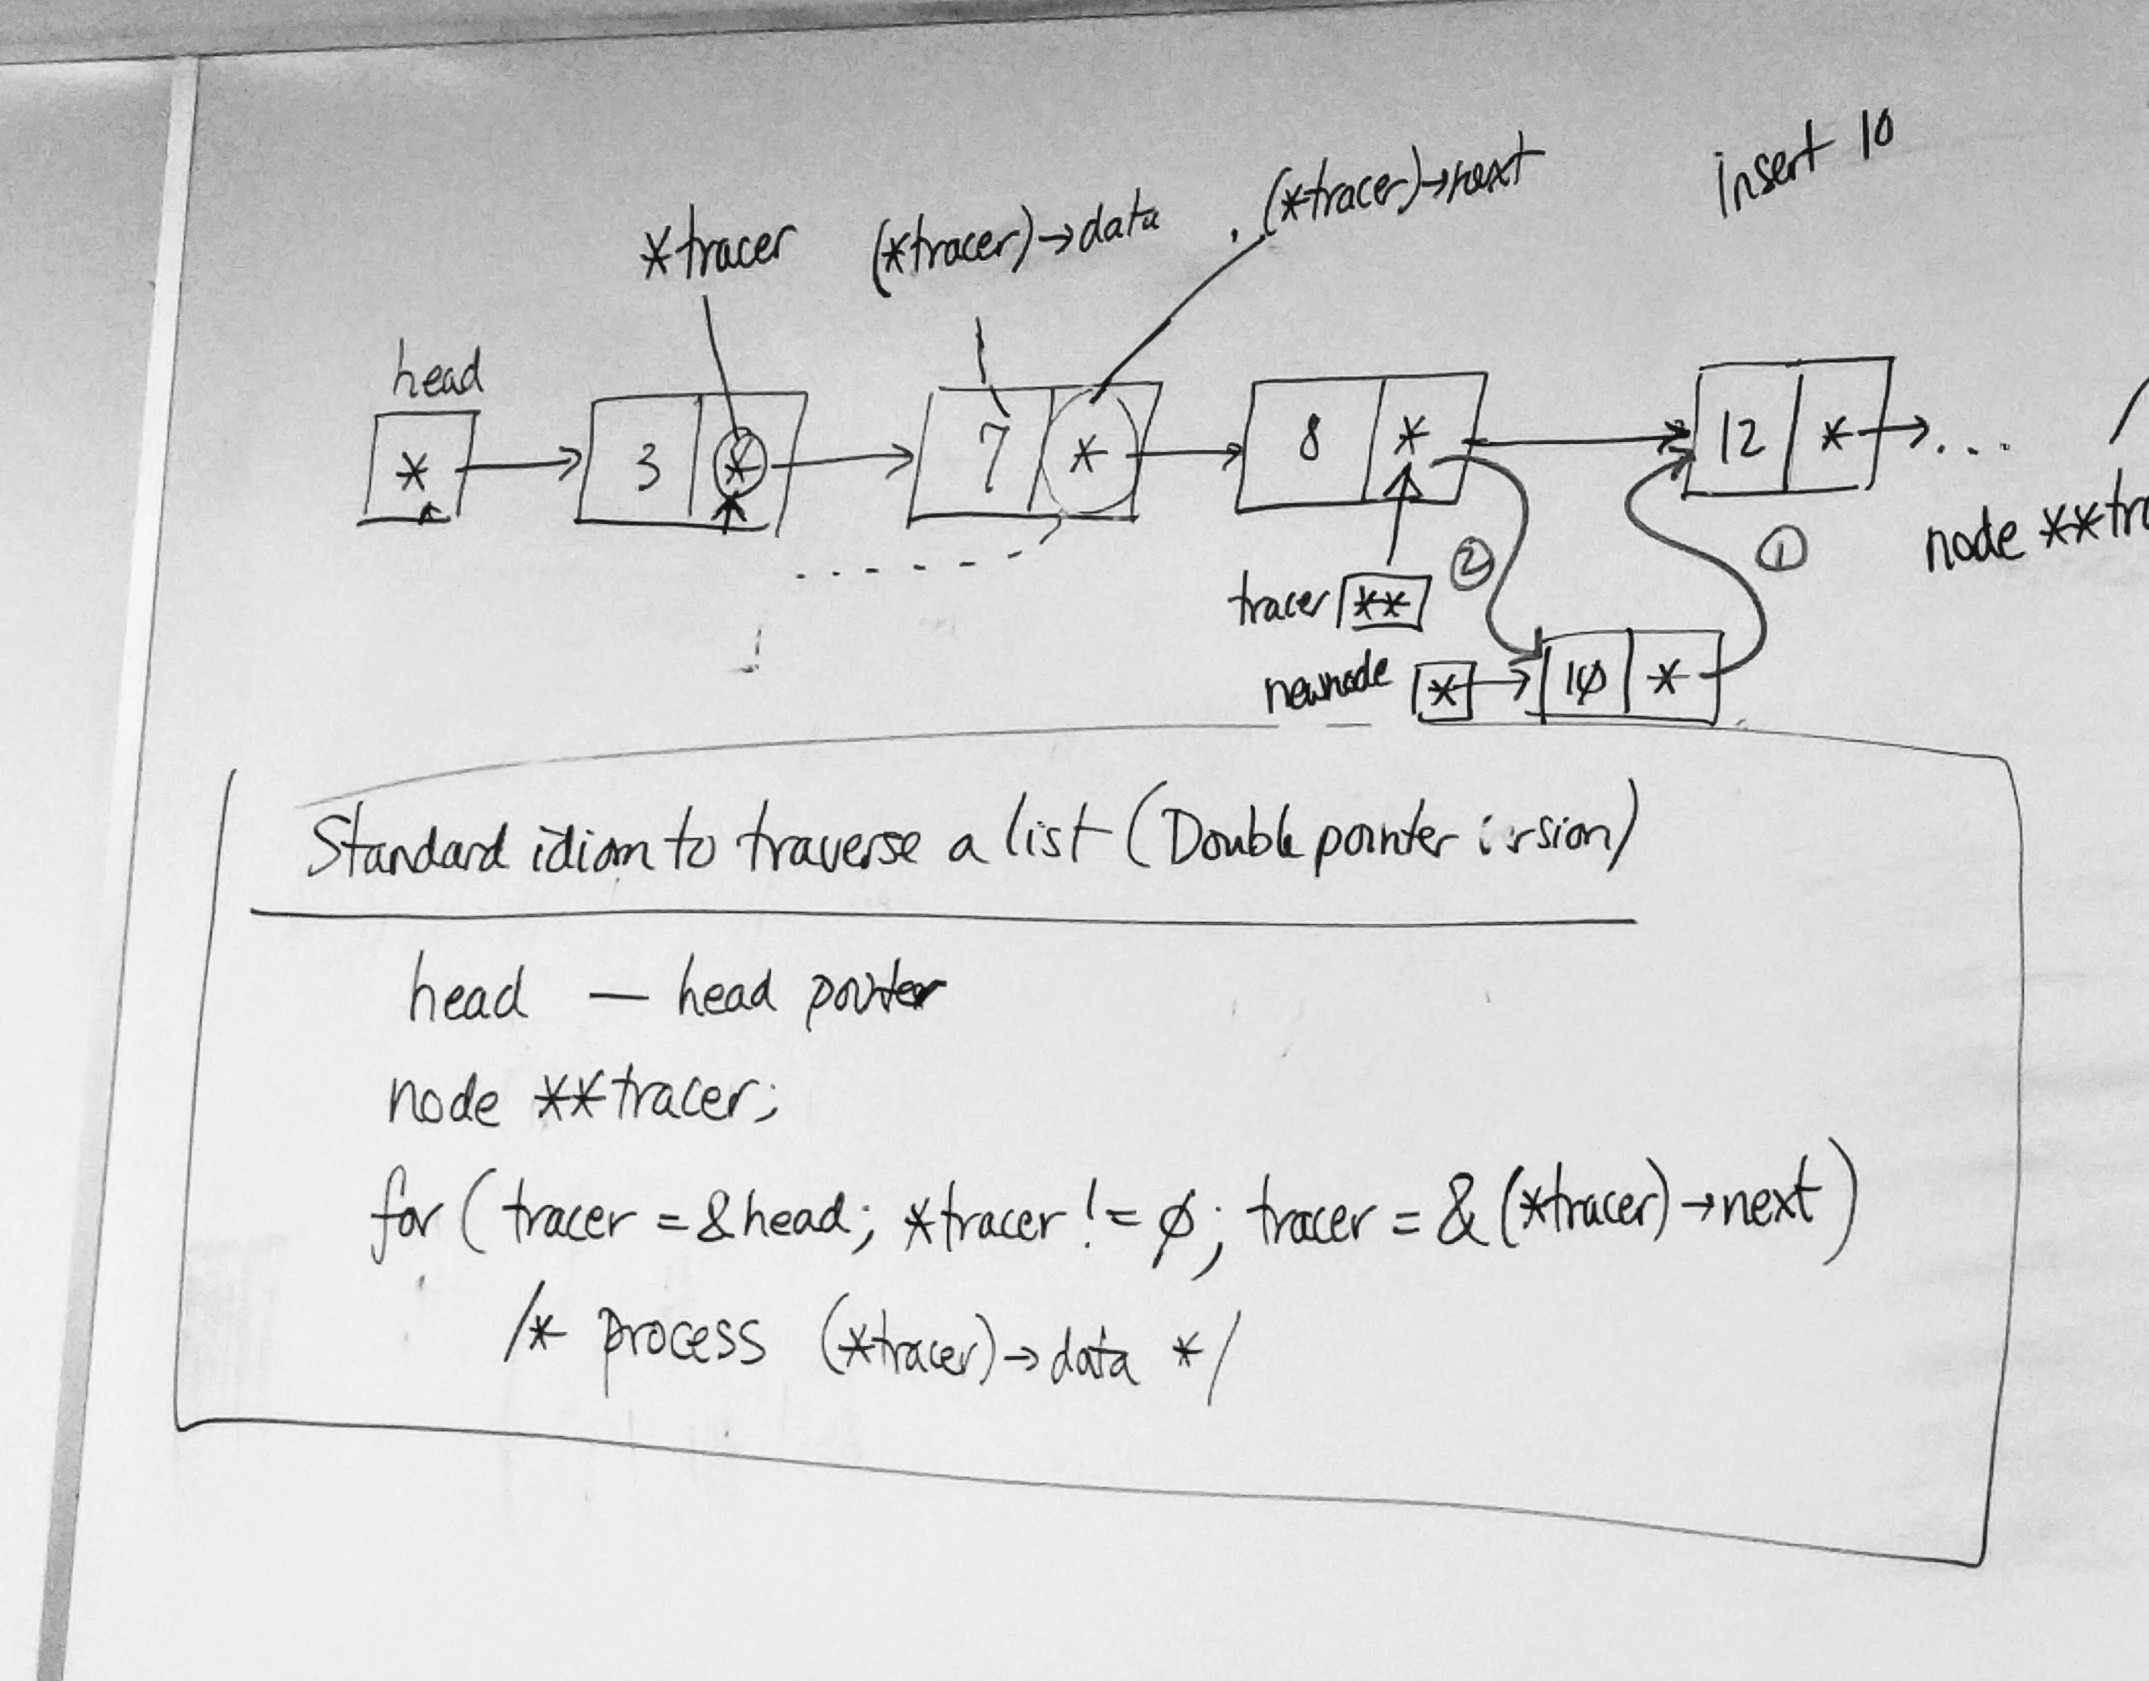 insert 10
*tracer (*tracer)→data (*tracer)→next
head
* 3 * 7 * 8 * 12 * ...
② ① node **tr
tracer **
newnode * 10 *
Standard idiom to traverse a list (Double pointer
head — head pointer
node **tracer;
for ( tracer = &head; *tracer != ∅; tracer = & (*tracer)→next )
/* process (*tracer)→data */